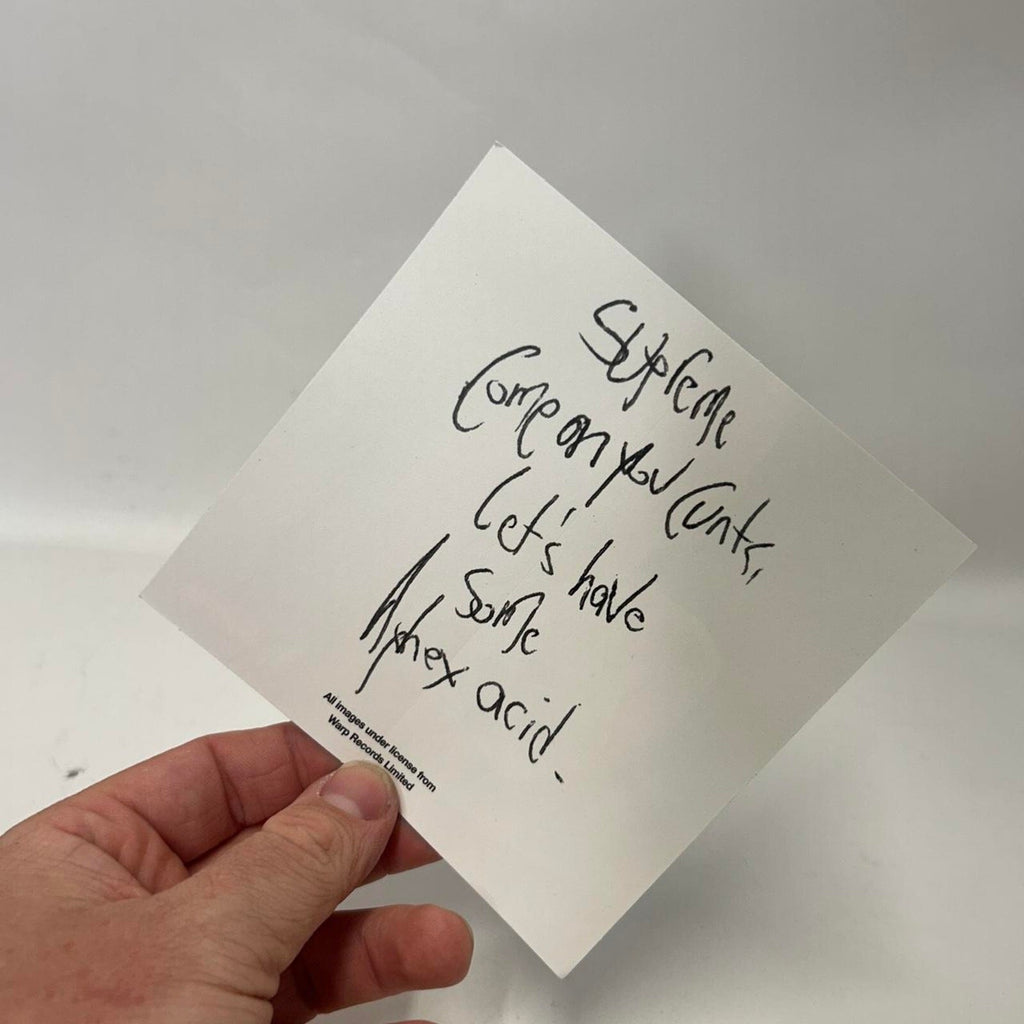 Supreme
Come on you cunts,
let's have
some
Aphex acid.
All images under license from
Warp Records Limited